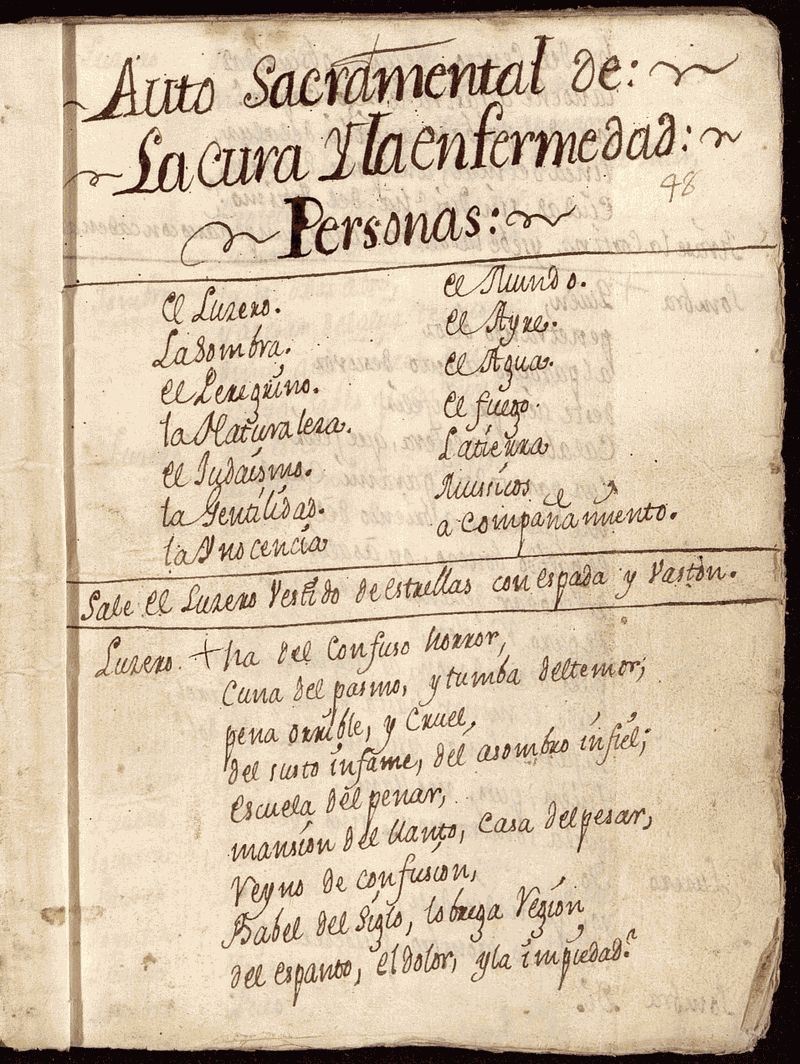 Auto Sacramental de:
La cura Y la enfermedad:
48
Personas:
el Luzero.
La Sombra.
el Peregrino.
la Naturaleza.
el Judaismo.
la Gentilidad.
la Ynocencia
el Mundo.
el Ayre.
el Agua.
el fuego.
La tierra
Mussicos
a Compañamiento.
Sale el Luzero Vestido de estrellas con espada y Vaston.
Luzero. + ha del Confuso horror,
Cuna del pasmo, y tumba del temor;
pena orrible, y Cruel,
del susto infame, del asombro infiel;
escuela del penar,
mansion del llanto, Casa del pesar,
Reyno de confusion,
Babel del Siglo, lobrega Region
del espanto, el dolor, y la impiedad?